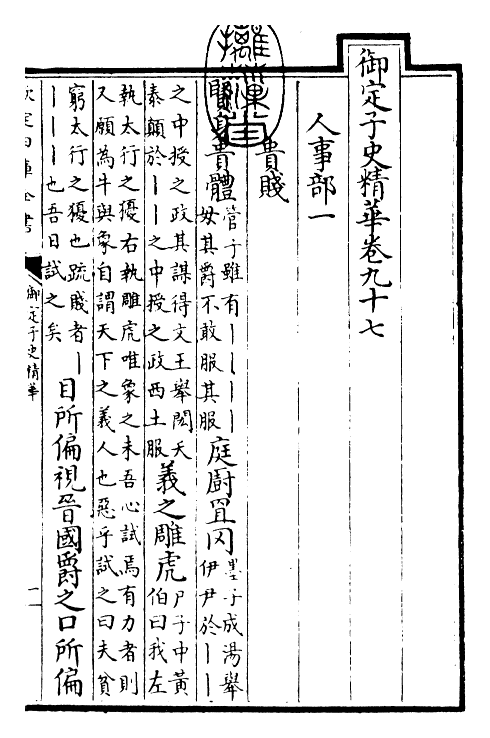 御定子史精華卷九十七
人事部一
貴賤
賢身貴體
管子雖有丨丨丨丨
毋其爵不敢服其服
庭廚罝罔
墨子成湯舉
伊尹於丨丨
之中授之政其謀得文王舉閎夭
泰顛於丨丨之中授之政西土服
義之雕虎
尸子中黃
伯曰我左
執太行之獶右執雕虎唯象之未吾心試焉有力者則
又願為牛與象自謂天下之義人也惡乎試之曰夫貧
窮太行之獶也疏賤者丨
丨丨丨也吾日試之矣
目所偏視晉國爵之口所偏
欽定四庫全書
御定子史精華
一